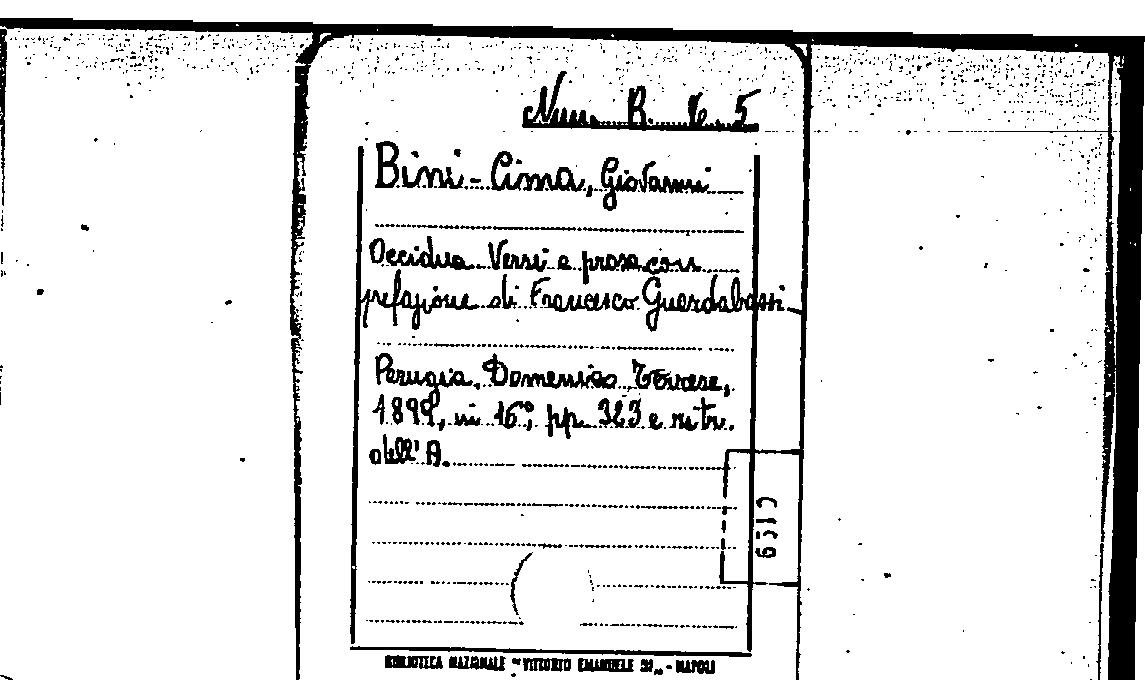 Num. B. 6. 5
Bini-Cima, Giovanni
Occidua Versi e prosa con
prefazione di Francesco Guardabassi
Perugia, Domenico Terese,
1899, in 16°, pp. 323 e ritr.
dell'A.
BIBLIOTECA NAZIONALE "VITTORIO EMANUELE III" - NAPOLI